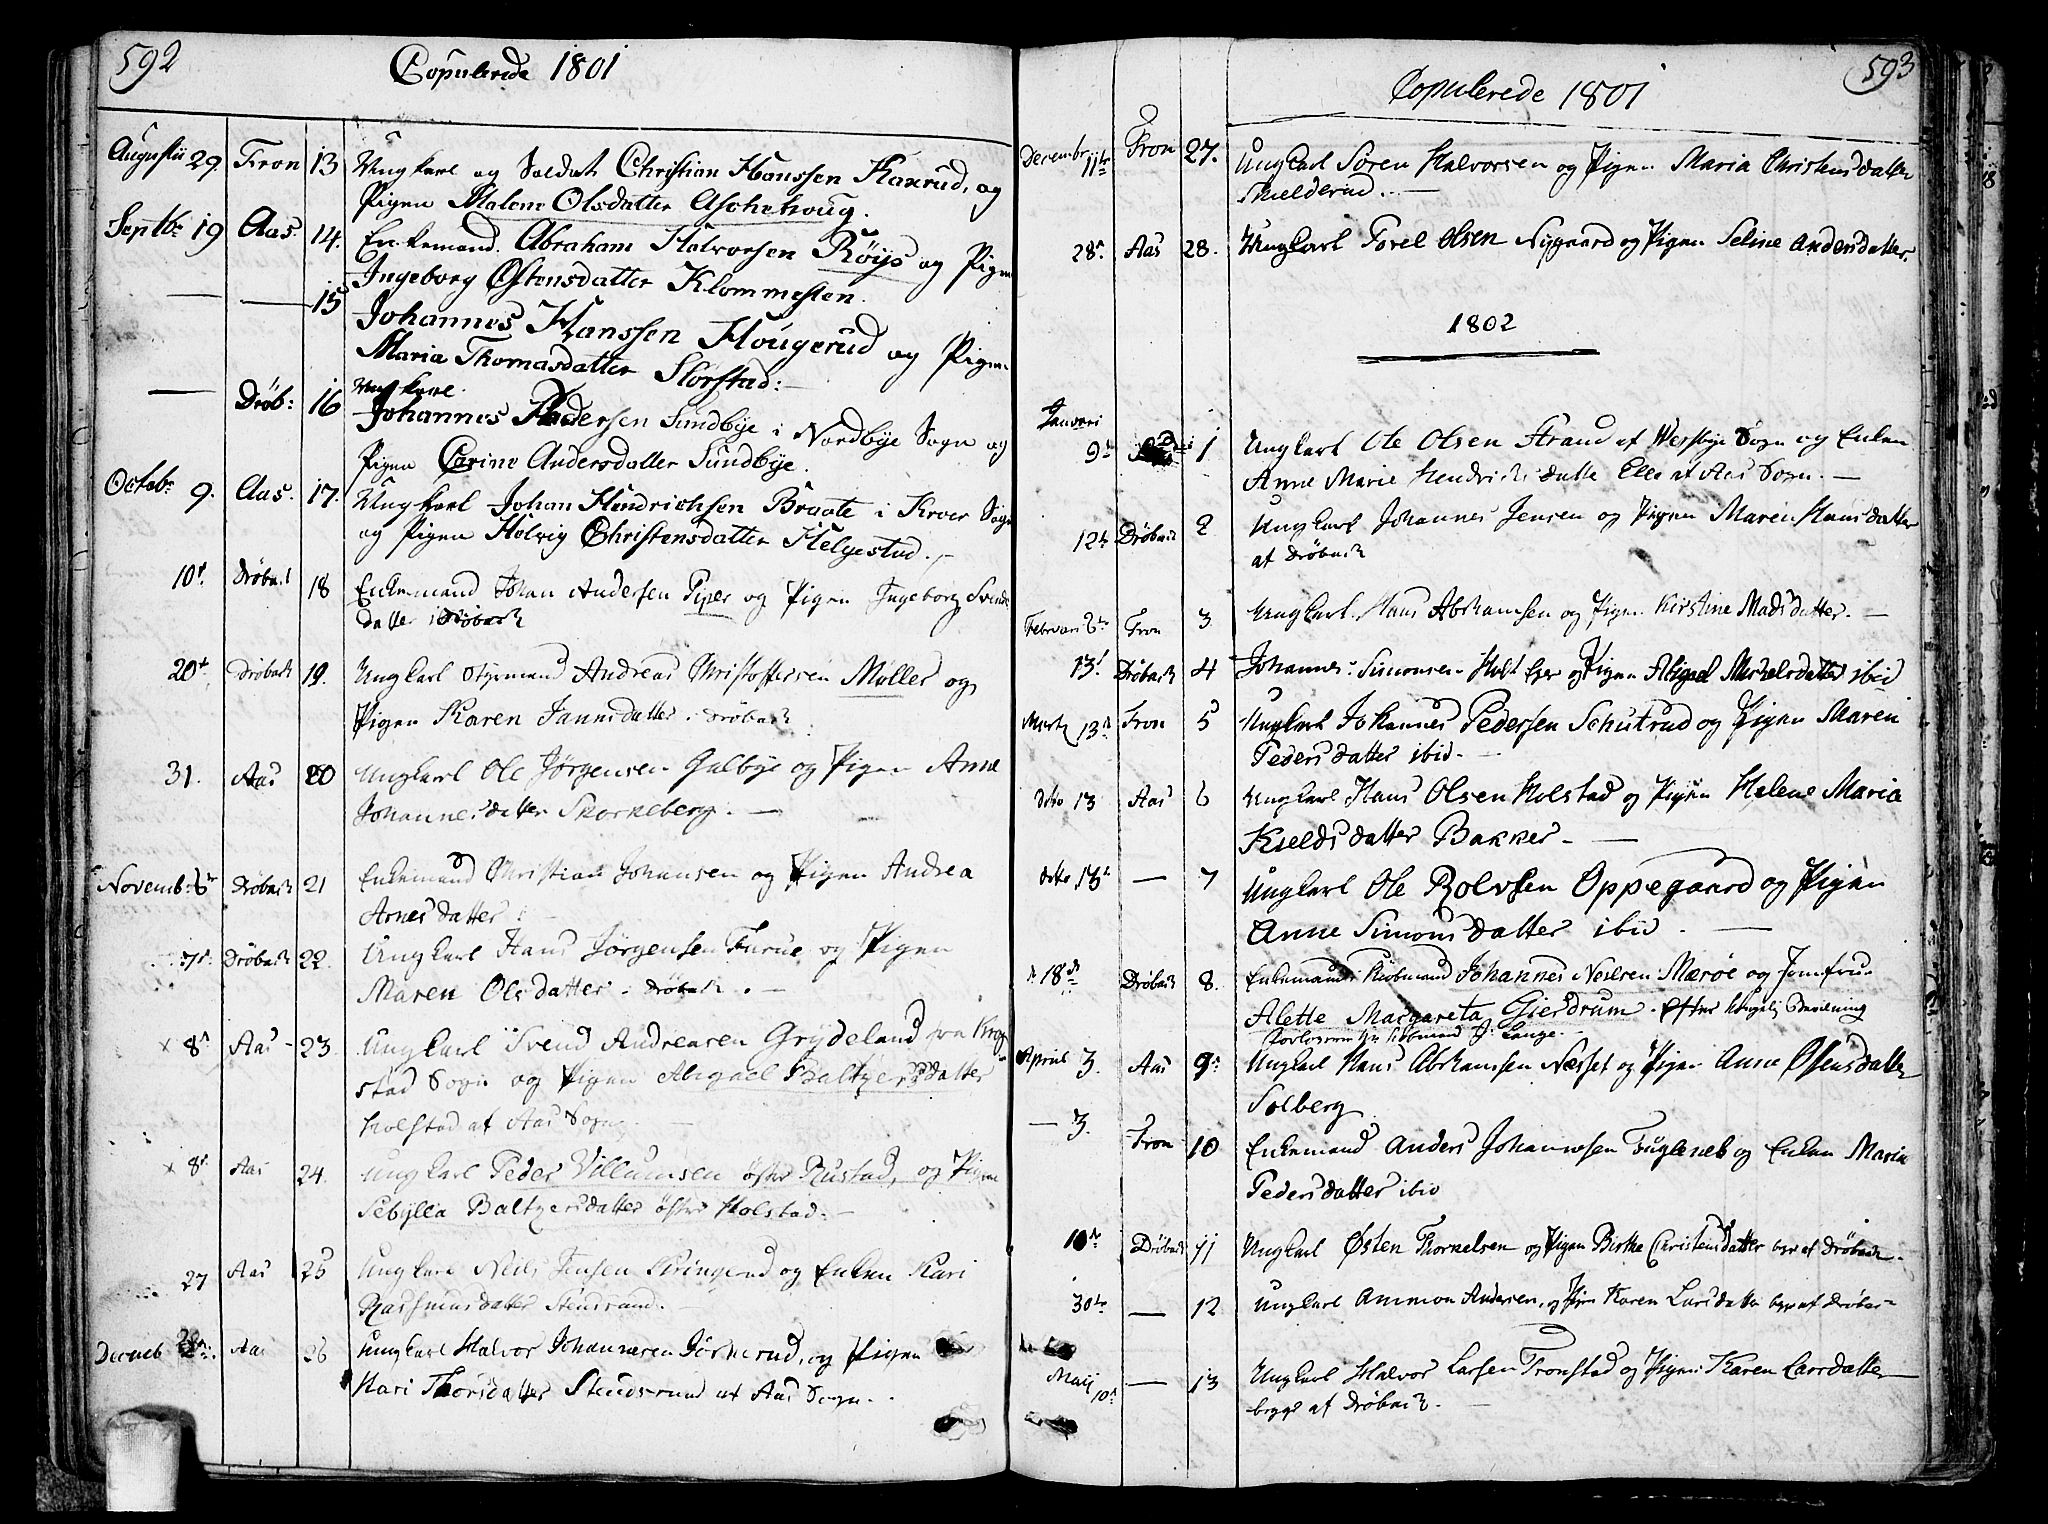 592
Copulerede 1801
Augustii 29. Fron 13 Ungkarl og Soldat Christian Hanssen Kaxrud, og
Pigen Malene Olsdatter Aschehoug.
Septbr 19 Aas. 14. Enkemand. Abraham Halvorsen Röys og Pigen
Ingeborg Östensdatter Klommesten.
— — 15 Johannes Hanssen Hougerud og Pigen
Maria Thomasdatter Storstad:
— Dröb: 16 Ungkarl.
Johannes Pedersen Sundbye i Nordbye Sogn og
Pigen Carine Andersdatter Sundbye.
Octobr 9. Aas. 17. Ungkarl Johan Hendrichsen Braate i Kroer Sogn
og Pigen Helvig Christensdatter Helgestad.
10t Dröbach 18 Enkemand Johan Andersen Piper og Pigen Ingeborg Svends
datter i Dröbach
20t Dröbach 19. Ungkarl Styrmand Andreas Christoffersen Møller og
Pigen Karen Jannsdatter. Dröbach
31. Aas 20 Ungkarl Ole Jørgensen Galbye og Pigen Anne
Johannesdatter Skorkeberg.
Novemb: 6te Dröbach 21 Enkemand Christian Johansen og Pigen Andrea
Arnesdatter:
7de Dröbach 22. Ungkarl Hans Jørgensen Furue og Pigen
Maren Olsdatter. Dröbach.
x 8d Aas 23. Ungkarl Svend Andreasen Grydeland fra Krog
stad Sogn og Pigen Abigael Baltzersdatter
Holstad af Aas Sogn
x 8d Aas 24. Ungkarl Peder Villumsen østre Rustad, og Pigen
Sebylla Baltzersdatter østre Holstad.
27 Aas 25 Ungkarl Neils Jensen og Enken Kari
Rassmusdatter Stensrund.
Decmb 28de Aas 26 Ungkarl Halvor Johannesen og Pigen
Kari Thorsdatter Stensrund af Aas Sogn.
593
Copulerede 1801
Decembr 11te Fron 27. Ungkarl Søren Halvorsen og Pigen Maria Christensdatter
Skielderud.
28d Aas 28. Ungkarl Torel Olsen Nygaard og Pigen Seline Andersdatter.
1802
Januari
9de 1 Ungkarl Ole Olsen Strand af Westbye Sogn og Enken
Anne Marie Hendrichsdatte Ellæ af Aas Sogn.
12te Dröbach 2 Ungkarl Johannes Jensen og Pigen Maren Hansdatter
af Dröbach
Februari 6te Fron 3 Ungkarl Hans Abrhamsen og Pigen Kirstine Madsdatter.
13d Dröbach 4 Johannes Simonsen Holt og Pigen Abigael Mickelsdatter ibid
Martz 13d Fron 5 Ungkarl Johannes Pedersen Schutrud og Pigen Maren
Pedersdatter ibid.
dito 13 Aas 6 Ungkarl Hans Olsen Holstad og Pigen Helene Maria
Kieldsdatter Bakker.
dito 13d — 7 Ungkarl Ole Rolvsen Oppegaard og Pigen
Anne Simonsdatter ibid.
18de Dröbach 8. Enkemand Kiöbmand Johannes Neilsen Mærøe og Jomfru
Alette Margareta Gierdrum. Efter kongelig Bevilning
Forlovere Kiöbmand J: Lange.
April 3. Aas 9. Ungkarl Hans Abrhamsen Næsset og Pigen Anne Østensdatter
Solberg
— 3. Fron 10 Enkemand Anders Johannesen Fugleneb og Enken Maria
Pedersdatter ibid
10de Dröbach 11 Ungkarl Østen Thorkelsen og Pigen Birthe Christensdatter beg af Dröbach.
30te — 12 Ungkarl Ammon Andersen, og Pigen Karen Larsdatter begge af Dröbac
Maij 10d — 13 Ungkarl Halvor Larsen Tronstad og Pigen Karen Larsdatter
begge af Dröbach.